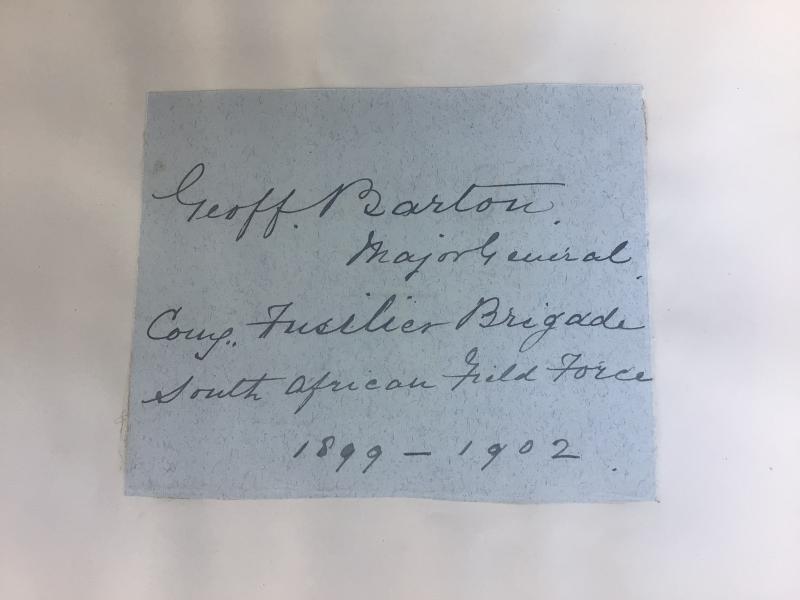 Geoff. Barton.
Major General.
Comg. Fusilier Brigade
South African Field Force
1899 – 1902.